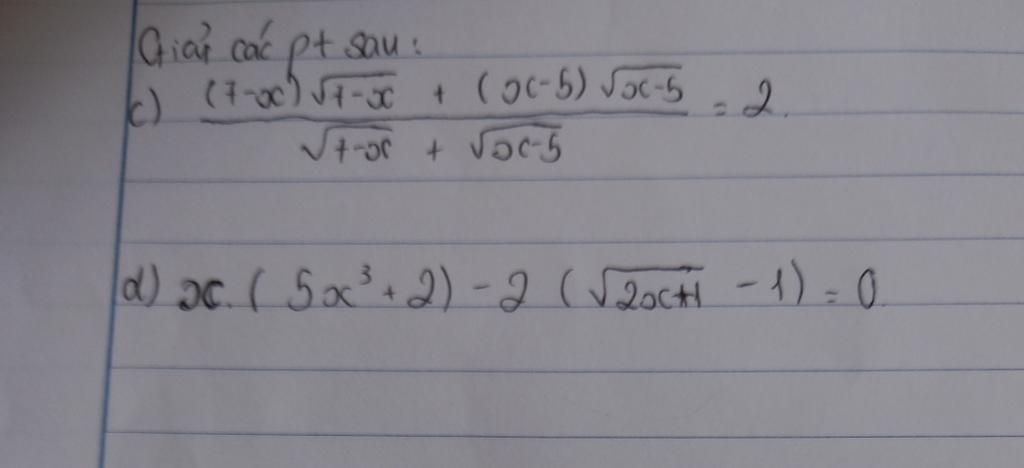 Giải các pt sau:
c) \frac{(7-x)\sqrt{7-x} + (x-5)\sqrt{x-5}}{\sqrt{7-x} + \sqrt{x-5}} = 2.
d) x.(5x^3+2) - 2(\sqrt{2x+1} - 1) = 0.